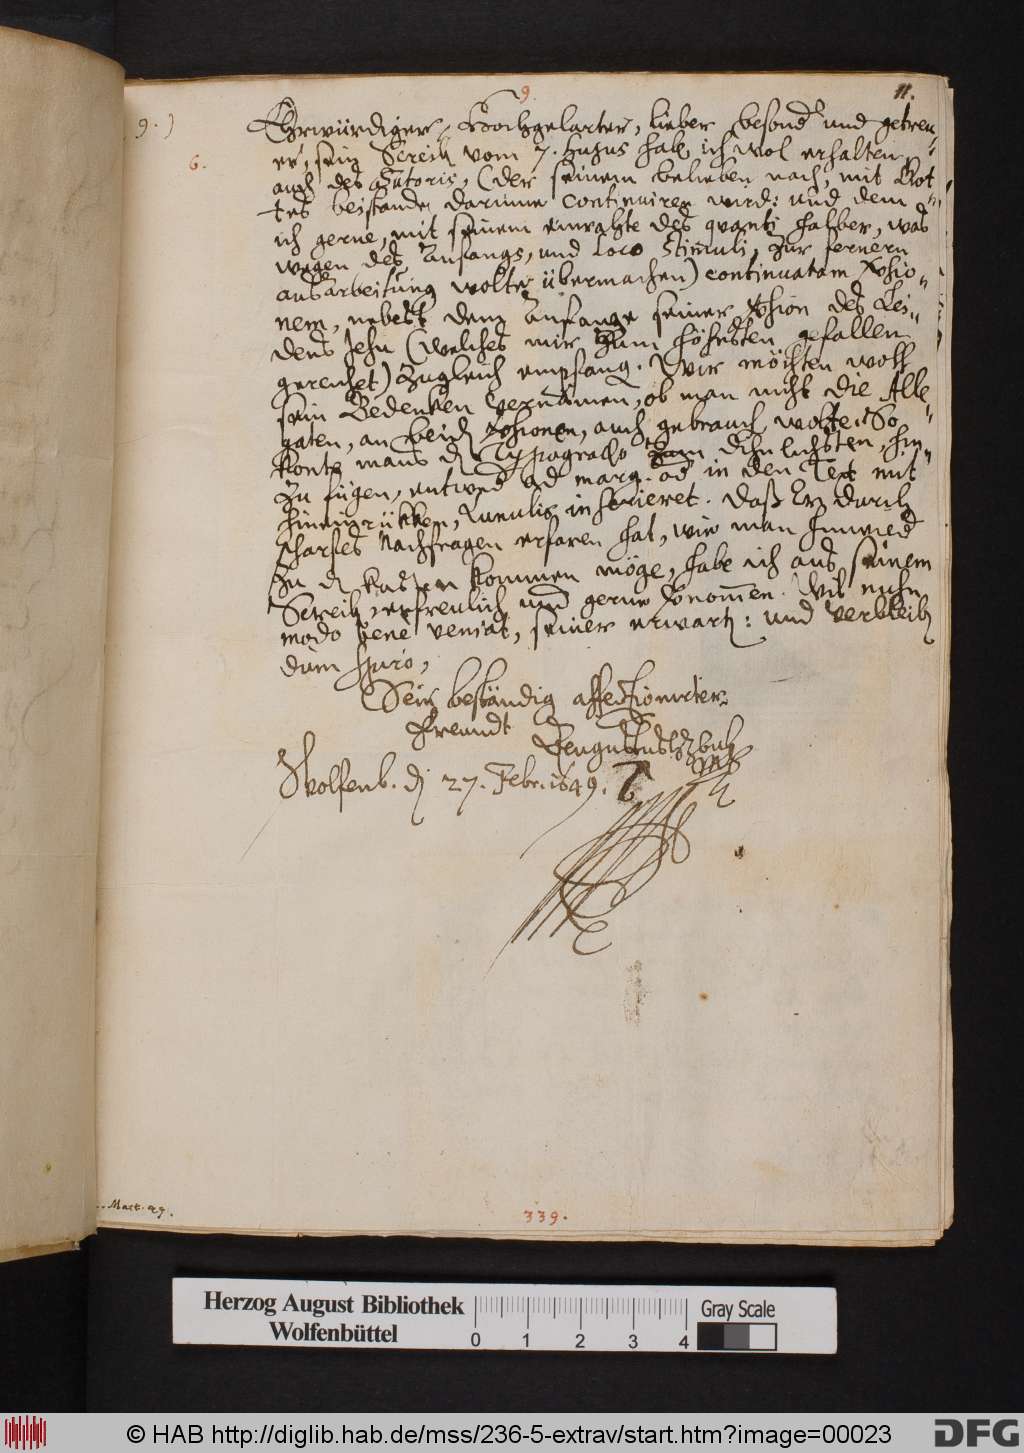 9.
11.
9.)
6.
Ehrwürdiger, Hochgelarter, lieber besond und getreu-
er, sein Screib vom 7. hujus hab ich wol erhalten,
auch des Autoris, (der seinem belieben nach, mit Got-
tes beistande darinne continuiren wird: und dem
ich gerne, mit seinem einrahte des quanti halber, was
wegen des Anfangs, und loco stimuli, zur fernern
ausarbeitung wolte übermachen) continuatam
nem, nebest dem Anfange seiner des Lei-
dens Jesu (welches mir zum höhesten gefallen
gereichet) zugleich empfang. Wir möchten woll
sein Bedenken vernämen, ob man nicht die Alle-
gaten, an beid auch gebrauch wolte. So
konte mans d Typographo zum dihnlichsten, hin-
zu fügen, entwed ad marg. od in den Text mit
hineinrükken, Lunulis Daß Er durch
scharfes Nachfragen erfaren hat, wie man
zu d kasten kommen möge, habe ich aus seinem
Screib erfreulich und gerne Wil nuhn
modo bene veniat, seiner erwart: und verbleib
dum spiro,
Sein beständig affectionirter
Freundt
Wolfenb. d 27. Febr. 1649.
Matt. 27.
339.
Herzog August Bibliothek
Wolfenbüttel
0 1 2 3 4
Gray Scale
© HAB http://diglib.hab.de/mss/236-5-extrav/start.htm?image=00023
DFG